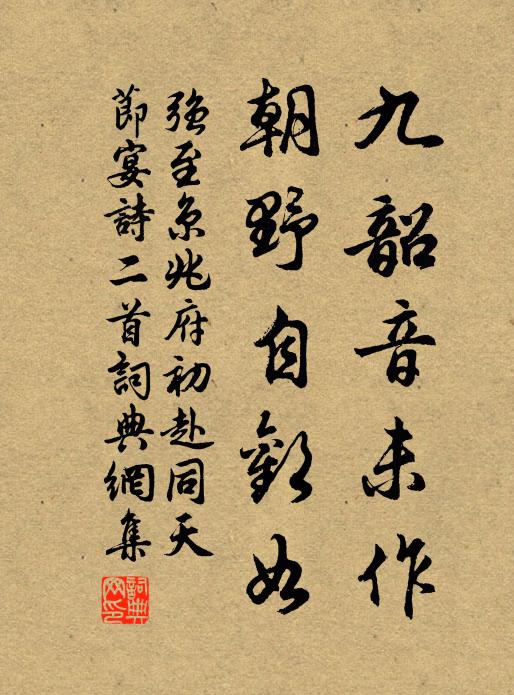 九韶音未作
朝野自歡如
強至京兆府初赴同天
節宴詩二首詞典網集
詞典
网印